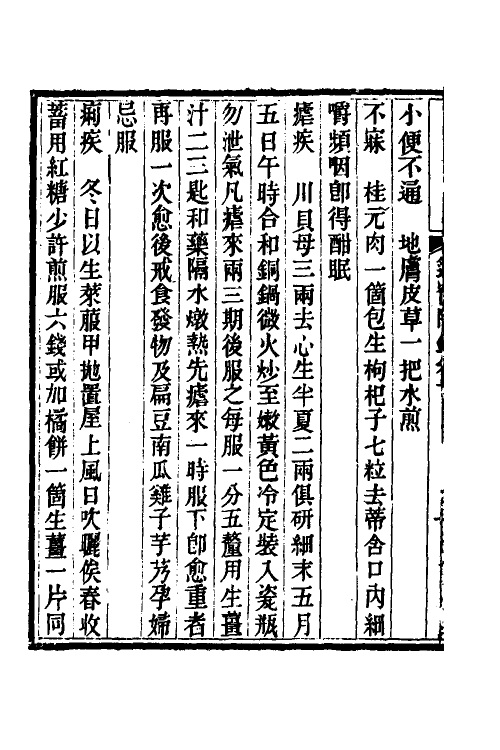 小便不通　地膚皮草一把水煎
不寐　桂元肉一箇包生枸杞子七粒去蒂含口內細
嚼頻咽卽得酣眠
瘧疾　川貝母三兩去心生半夏二兩俱研細末五月
五日午時合和銅鍋微火炒至嫩黃色冷定裝入瓷瓶
勿泄氣凡瘧來兩三期後服之每服一分五釐用生薑
汁二三匙和藥隔水燉熱先瘧來一時服下卽愈重者
再服一次愈後戒食發物及扁豆南瓜雞子芋艿孕婦
忌服
痢疾　冬日以生萊菔甲拋置屋上風日吹曬俟春收
蓄用紅糖少許煎服六錢或加橘餅一箇生薑一片同